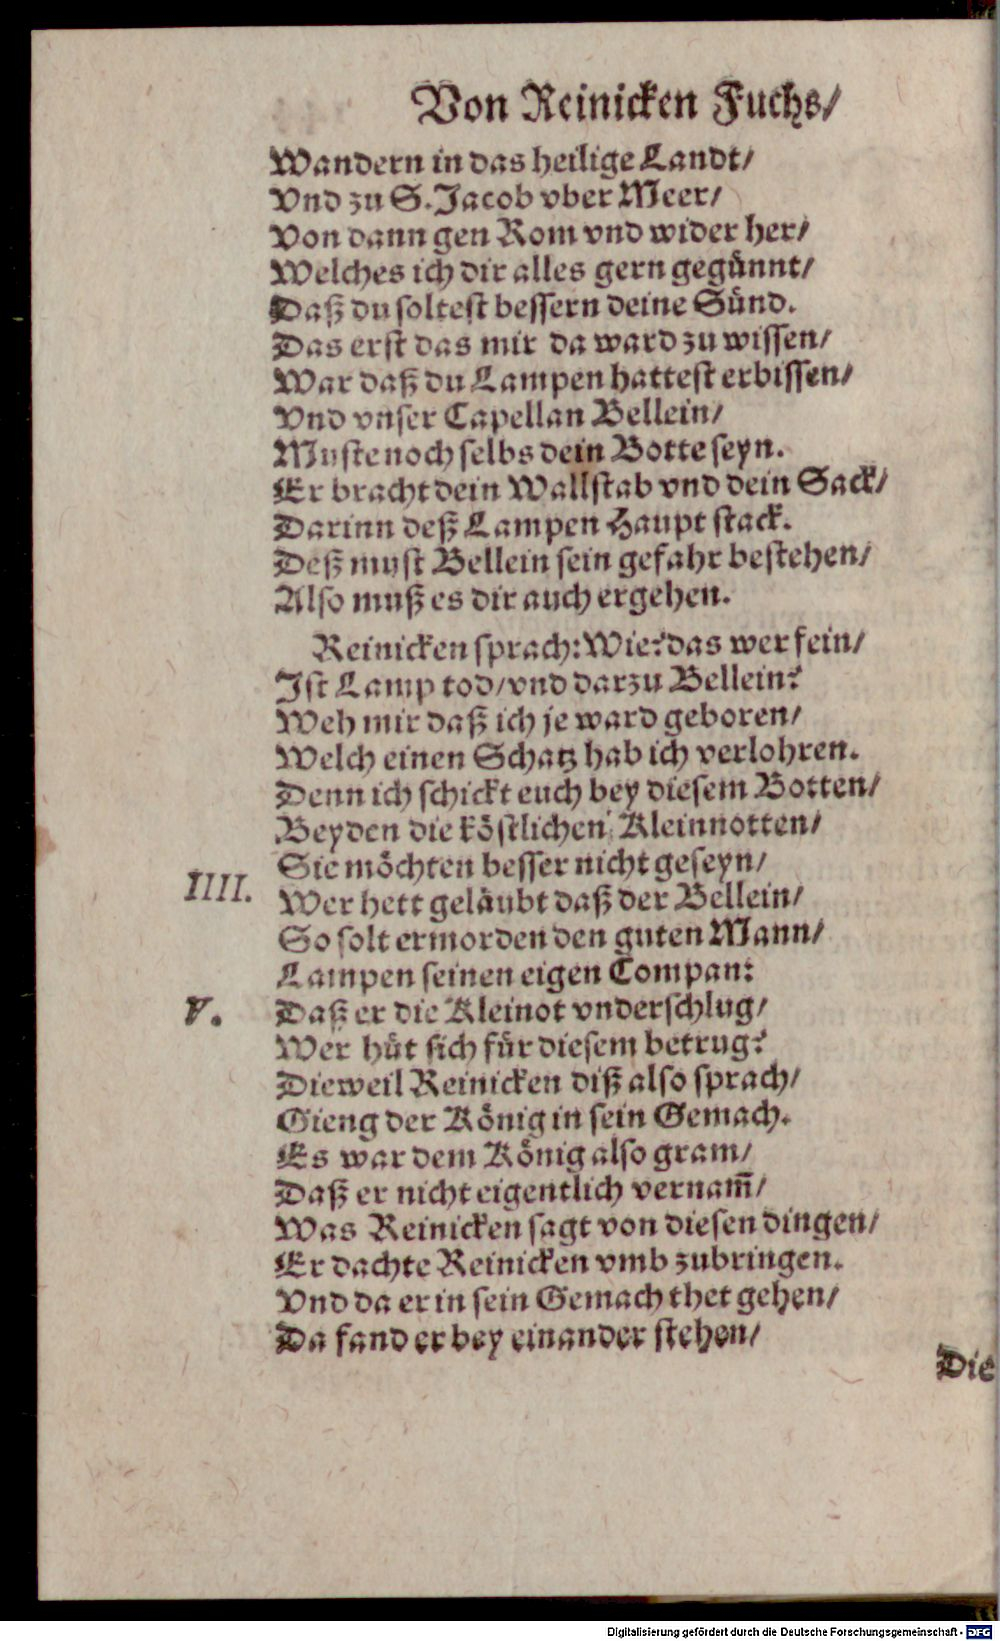 Von Reinicken Fuchs/
Wandern in das heilige Landt/
Vnd zu S. Jacob vber Meer/
Von dann gen Rom vnd wider her/
Welches ich dir alles gern gegünnt/
Daß du soltest bessern deine Sünd.
Das erst das mir da ward zu wissen/
War daß du Lampen hattest erbissen/
Vnd vnser Capellan Bellein/
Muste noch selbs dein Botte seyn.
Er bracht dein Wallstab vnd dein Sack/
Darinn deß Lampen Haupt stack.
Deß must Bellein sein gefahr bestehen/
Also muß es dir auch ergehen.
Reinicken sprach: Wie? das wer fein/
Ist Lamp tod/ vnd darzu Bellein?
Weh mir daß ich je ward geboren/
Welch einen Schatz hab ich verlohren.
Denn ich schickt euch bey diesem Botten/
Beyden die köstlichen Kleinnotten/
Sie möchten besser nicht geseyn/
IIII. Wer hett geläubt daß der Bellein/
So solt ermorden den guten Mann/
Lampen seinen eigen Compan?
V. Daß er die Kleinot vnderschlug/
Wer hüt sich für diesem betrug?
Dieweil Reinicken diß also sprach/
Gieng der König in sein Gemach.
Es war dem König also gram/
Daß er nicht eigentlich vernam̃/
Was Reinicken sagt von diesen dingen/
Er dachte Reinicken vmb zubringen.
Vnd da er in sein Gemach thet gehen/
Da fand er bey einander stehen/
Die
Digitalisierung gefördert durch die Deutsche Forschungsgemeinschaft - DFG